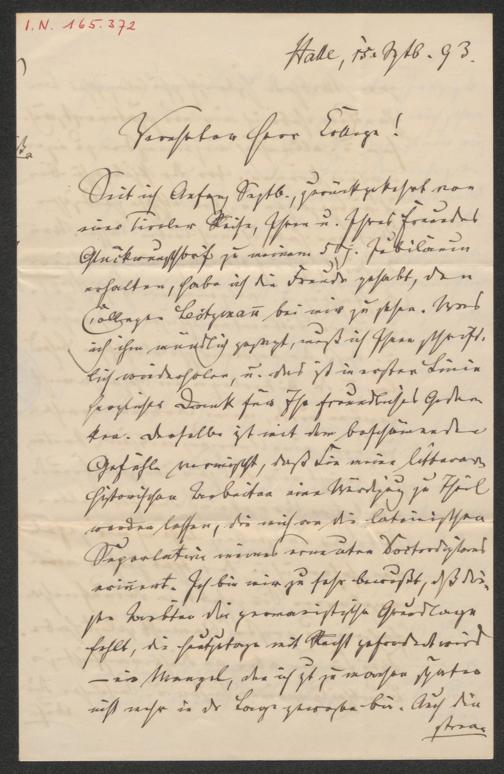 I.N. 165.372
Halle, 15. Septb. 93.
Verehrter Herr College!
Seit ich Anfang Septb., zurückgekehrt von
einer Tiroler Reise, Ihren u. Ihres Freundes
Glückwunschbrief zu meinem 50j. Jubiläum
erhalten, habe ich die Freude gehabt, den
Collegen bei mir zu sehen. Was
ich ihm mündlich gesagt, muß ich Ihnen schrift-
lich wiederholen, u. das ist in erster Linie
herzlicher Dank für Ihr freundliches Geden-
ken. Derselbe ist mit dem beschämenden
Gefühle vermischt, daß Sie meine litterar-
historischen Arbeiten eine Würdigung zu Theil
werden lassen, die mich an die lateinischen
Superlative meines erneuten Doctordiploms
erinnert. Ich bin mir zu sehr bewußt, daß die-
sen Arbeiten die germanistische Grundlage
fehlt, die heutzutage mit Recht gefordert wird
— ein Mangel, den ich gut zu machen später
nicht mehr in der Lage gewesen bin. Auch die